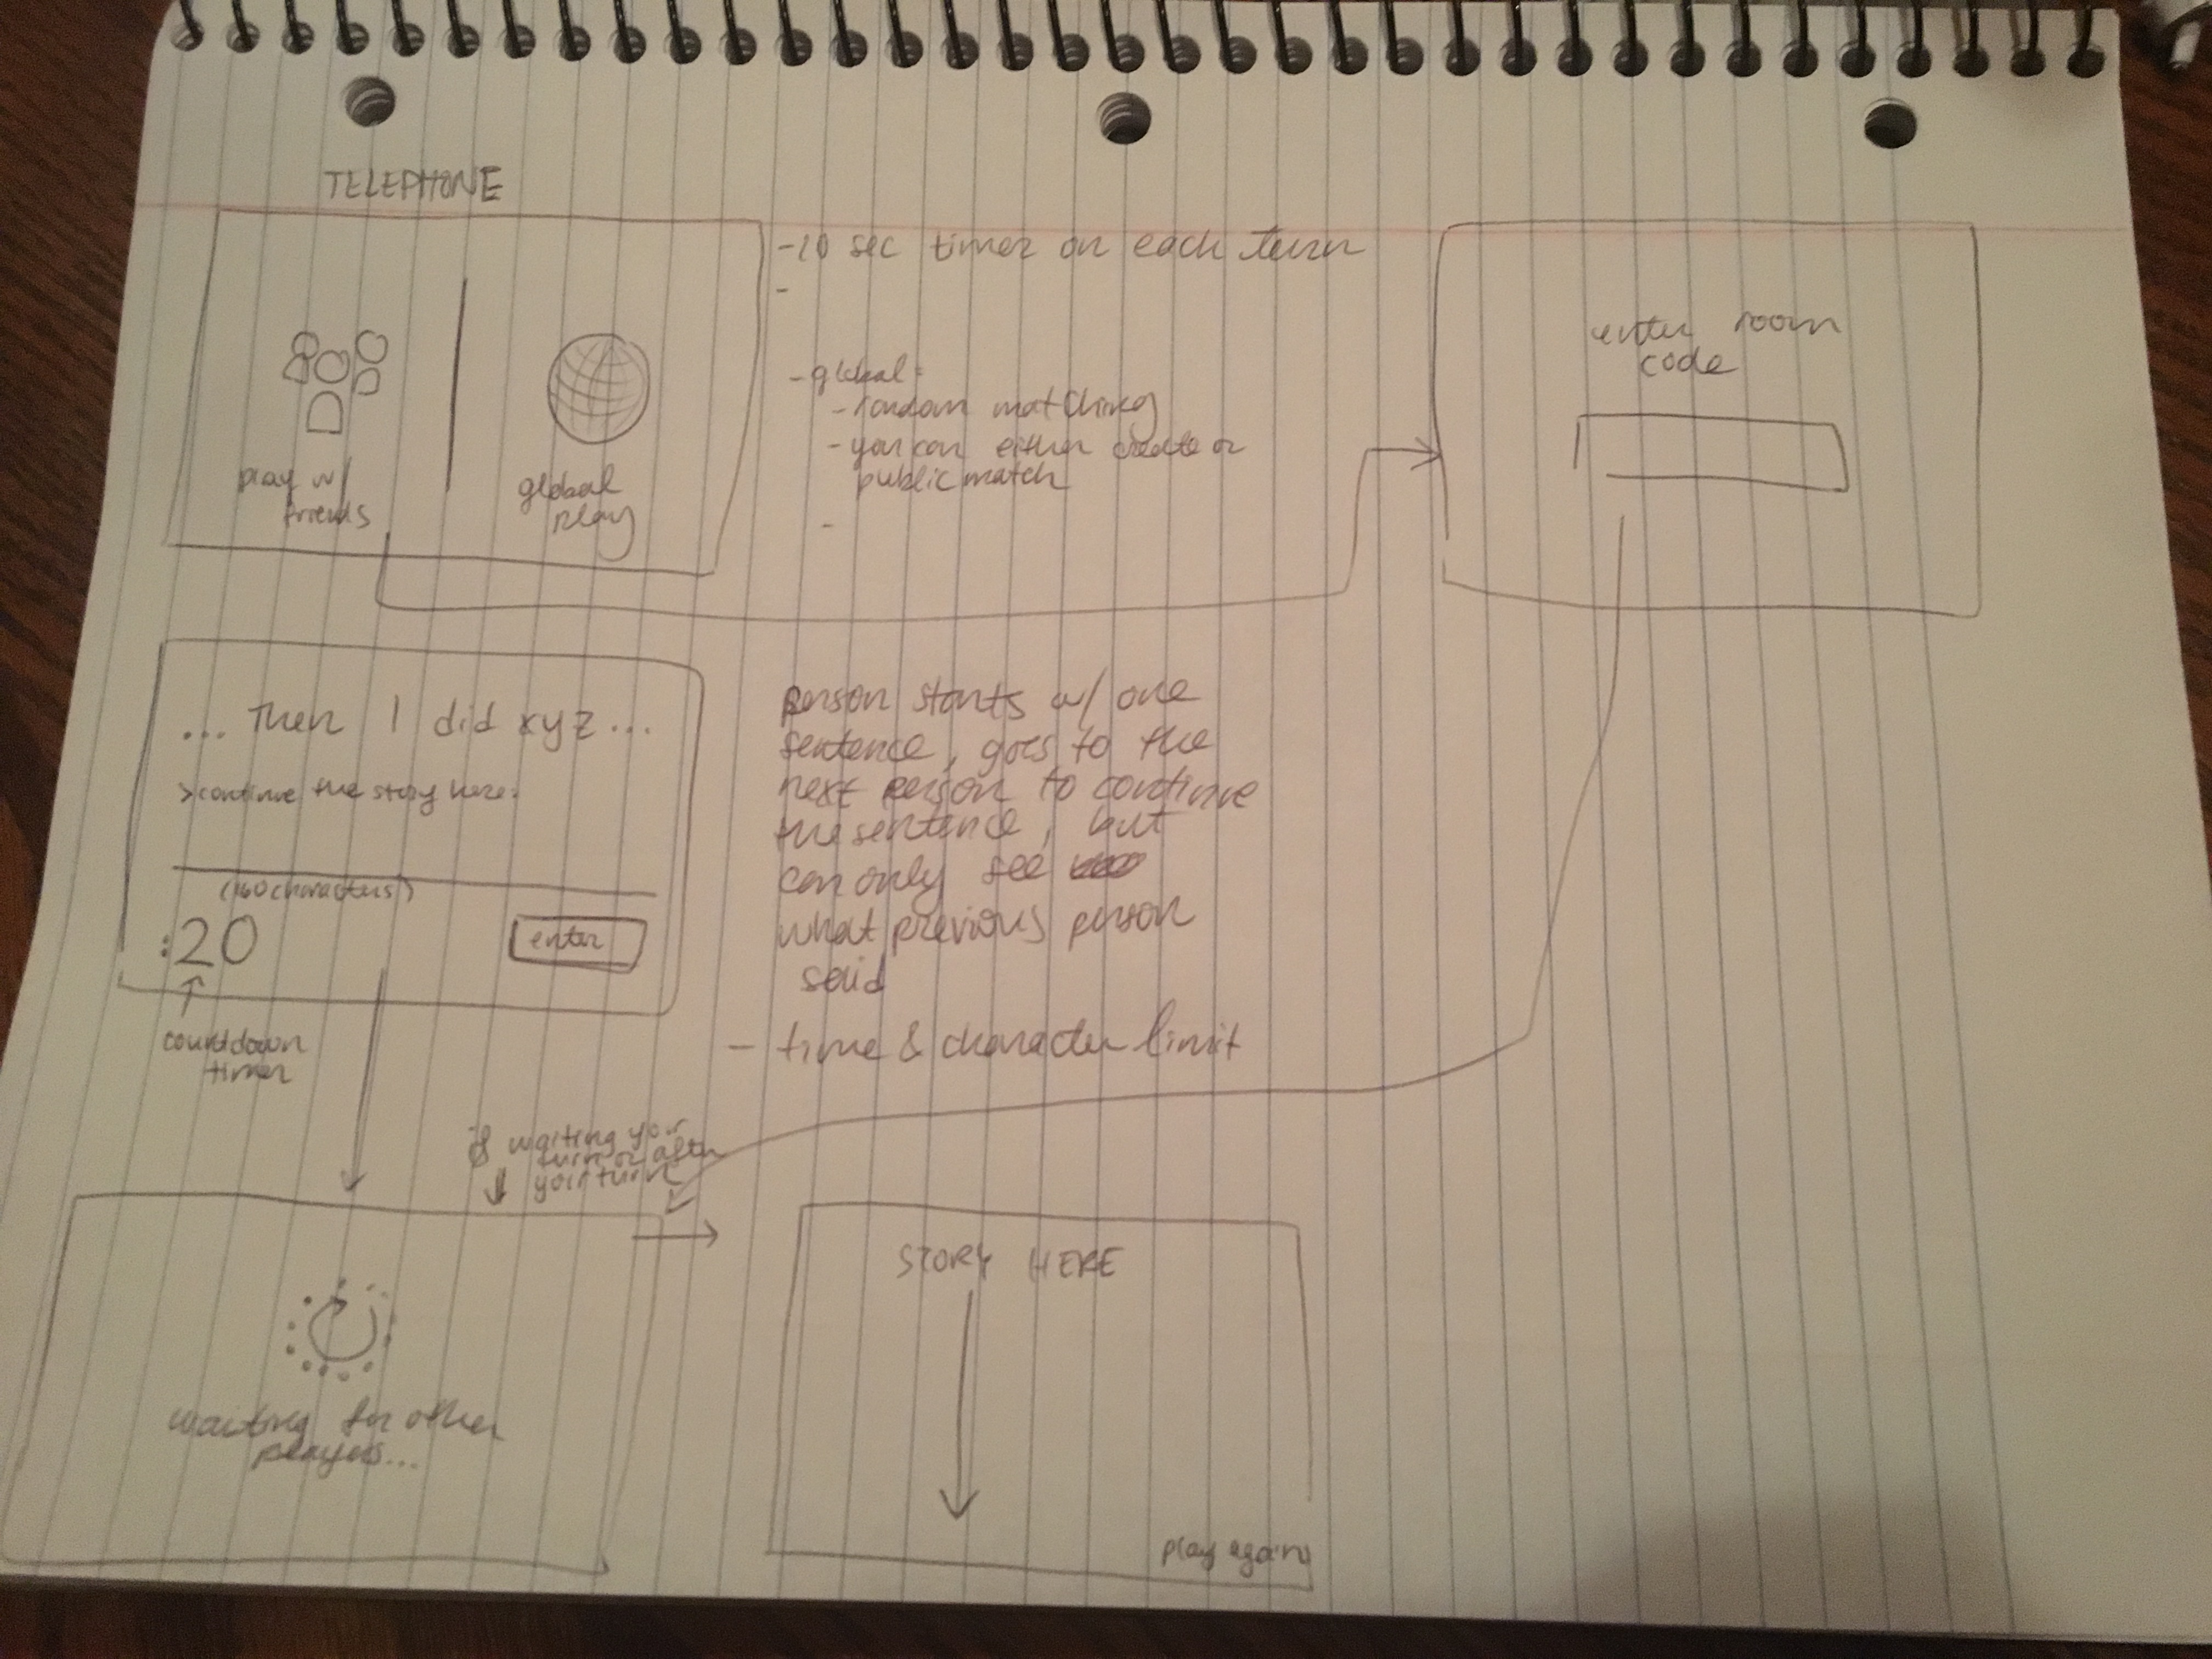 TELEPHONE
play w/
friends
global
play
-10 sec timer on each turn
-
-global:
-random matching
-you can either create or
public match
-
enter room
code
... Then I did xyz...
>continue the story here:
(160 characters)
:20
enter
countdown
timer
person starts w/ one
sentence, goes to the
next person to continue
the sentence, but
can only see
what previous person
said
- time & character limit
if waiting your
turn or after
your turn
waiting for other
players...
STORY HERE
play again